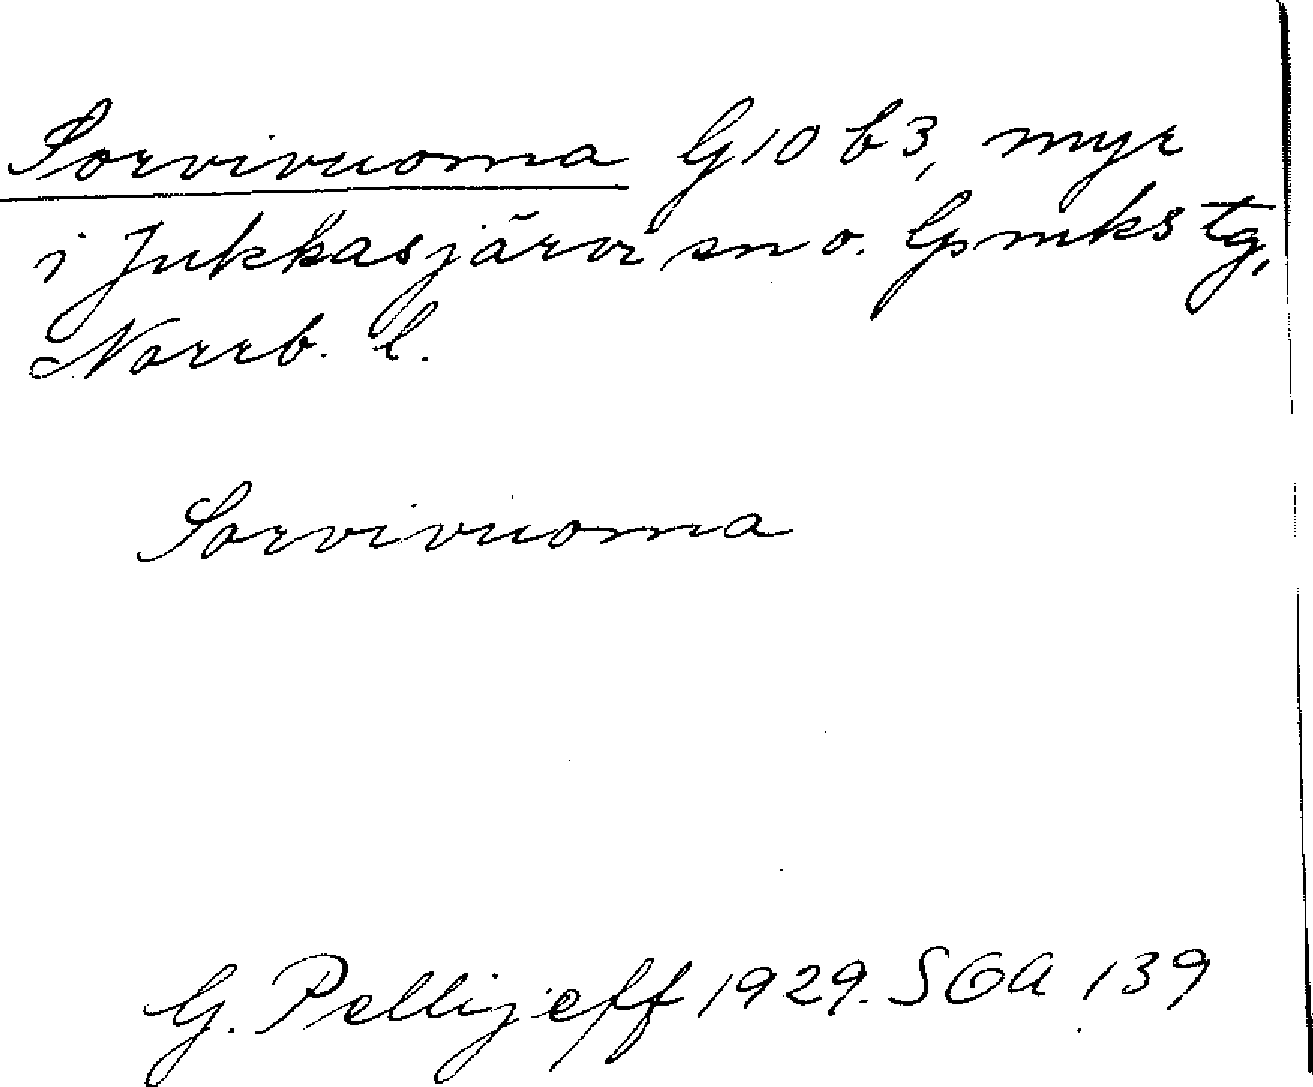 Sorvivuoma G10 b3, myr
i Jukkasjärvi sn o. Gmks tg,
Norrb. l.
Sorvivuoma
G. Pellijeff 1929. SOA 139